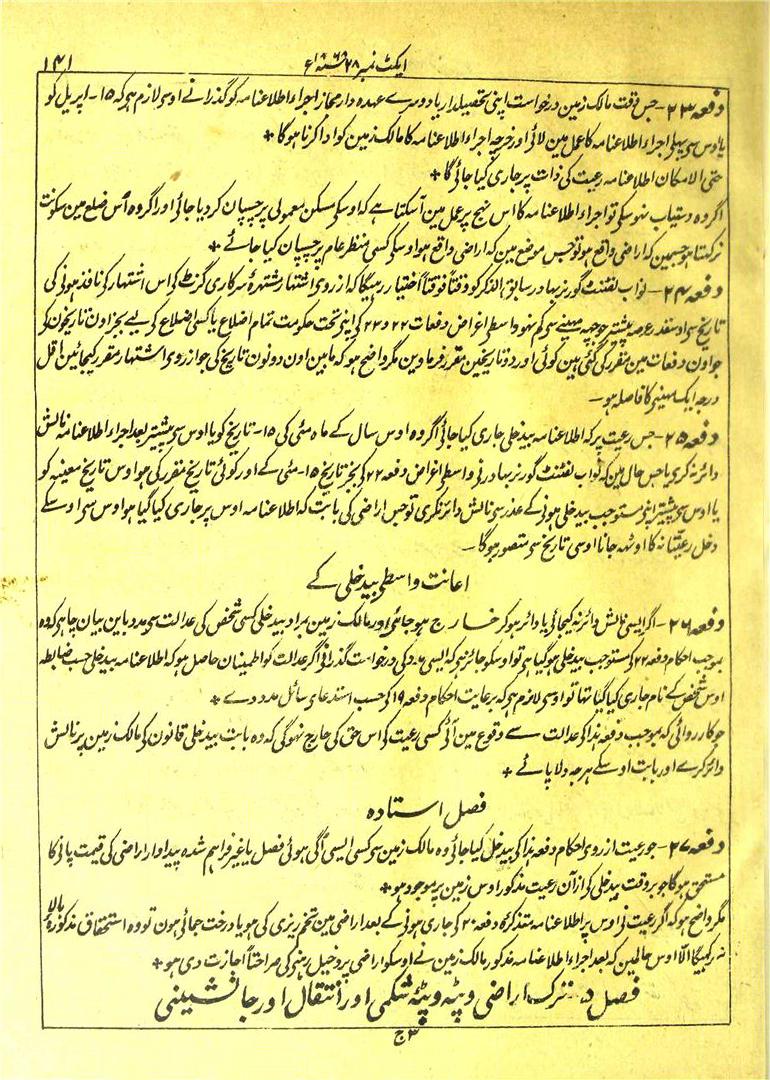 ۱۴۱
ایکٹ نمبر ۲۸ سنہ ۱۸۶۸ ء
دفعہ ۲۳ - جس وقت مالک زمین درخواست اپنی تحصیلدار یا دوسرے عہدہ دار مجاز اجراء اطلاعنامہ کو گذرانے اوسی لازم ہی کہ ۱۵ - اپریل کو
یا اوس سی پہلی اجراء اطلاعنامہ کا عمل مین لائی اور خرچہ اجراء اطلاعنامہ کا مالک زمین کو ادا کرنا ہوگا *
حتی الامکان اطلاعنامہ رعیت کی ذات پر جاری کیا جائی گا *
اگر وہ دستیاب نہوسکی تو اجراء اطلاعنامہ کا اس نہج پر عمل مین آسکتا ہے کہ اوسکی مسکن معمولی پر چسپان کر دیا جائی اور اگر وہ اُس ضلع مین سکونت
نرکہتا ہو جسمین کہ اراضی واقع ہو تو جس موضع مین کہ اراضی واقع ہو اوسکی کسی منظر عام پر چسپان کیا جائے *
دفعہ ۲۴ - نواب لفٹنٹ گورنر بہادر سابق الذکر کو وقتاً فوقتاً اختیار رہیگا کہ ازروی اشتہار مشتہرہٴ سرکاری گزٹ کی اس اشتہار کی نافذ ہونی کی
تاریخ سی اوسقدر عرصہ پیشتر جو چہہ مہینے سی کم نہو واسطی اغراض دفعات ۲۲ و ۲۳ کی اپنی تحت حکومت تمام اضلاع یا کسی اضلاع کی لیے بجز اون تاریخون کو
جو اون دفعات مین مقرر کی گئی ہین کوئی اور دو تاریخین مقرر فرماوین مگر واضح ہو کہ مابین اون دونون تاریخ کی جو ازروی اشتہار مقرر کیجائین اقل
درجہ ایک مہینی کا فاصلہ ہو -
دفعہ ۲۵ - جس رعیت پر کہ اطلاعنامہ بیدخلی جاری کیا جائی اگر وہ اوس سال کے ماہ مئی کی ۱۵ - تاریخ کو یا اوس سی پیشتر بعد اجراء اطلاعنامہ نالش
دائر نکری یا جس حال مین کہ نواب لفٹنٹ گورنر بہادر نی واسطی اغراض دفعہ ۲۲ کی بجز تاریخ ۱۵ - مئی کے اور کوئی تاریخ مقرر کی ہو اوس تاریخ معینہ کو
یا اوس سی پیشتر اپنی مستوجب بیدخلی ہونی کے عذر سی نالش دائر نکری تو جس اراضی کی بابت کہ اطلاعنامہ اوس پر جاری کیا گیا ہو اوس سی اوسکے
دخل رعیتانہ کا اوٹہہ جانا اوسی تاریخ سی متصور ہوگا -
اعانت واسطی بیدخلی کے
دفعہ ۲۶ - اگر ایسی نالش دائر نہ کیجائی یا دائر ہو کر خارج ہو جائی اور مالک زمین بمراد بیدخلی کسی شخص کی عدالت سی مدد باین بیان چاہی کہ وہ
بموجب احکام دفعہ ۲۲ کی مستوجب بیدخلی ہو گیا ہے تو اوسکو جائز ہی کہ ایسی مدد کی درخواست گذرانی اگر عدالت کو اطمینان حاصل ہو کہ اطلاعنامہ بیدخلی حسب ضابطہ
اوس شخص کے نام جاری کیا گیا تہا تو اوسی لازم ہی کہ برعایت احکام دفعہ ۱۹ کی حسب استدعای سائل مدد دے *
جو کارروائی کہ بموجب دفعہ ہذا کی عدالت سے وقوع مین آئی کسی رعیت کی اس حق کی حارج نہوگی کہ وہ بابت بیدخلی قانون کی مالک زمین پر نالش
دائر کرے اور بابت اوسکے ہرجہ دلا پائے *
فصل استادہ
دفعہ ۲۷ - جو رعیت ازروی احکام دفعہ ہذا کی بیدخل کیا جائی وہ مالک زمین سی کسی ایسی اُگی ہوئی فصل یا غیر فراہم شدہ پیداوار اراضی کی قیمت پانی کا
مستحق ہوگا جو بروقت بیدخلی کی ازآن رعیت مذکور اوس زمین پر موجود ہو *
مگر واضح ہو کہ اگر رعیت نی اوس پر اطلاعنامہ متذکرہٴ دفعہ ۲۰ کی جاری ہونی کے بعد اراضی مین تخم ریزی کی ہو یا درخت جمائی ہون تو وہ استحقاق مذکورہٴ بالا
نہ رکہیگا الّا اوس حالمین کہ بعد اجراء اطلاعنامہ مذکور مالک زمین نے اوسکو اراضی پر دخیل رہنی کی صراحتاً اجازت دی ہو *
فصل د - ترک اراضی و پٹہ و پٹہ شکمی اور انتقال اور جانشینی
ج ۳